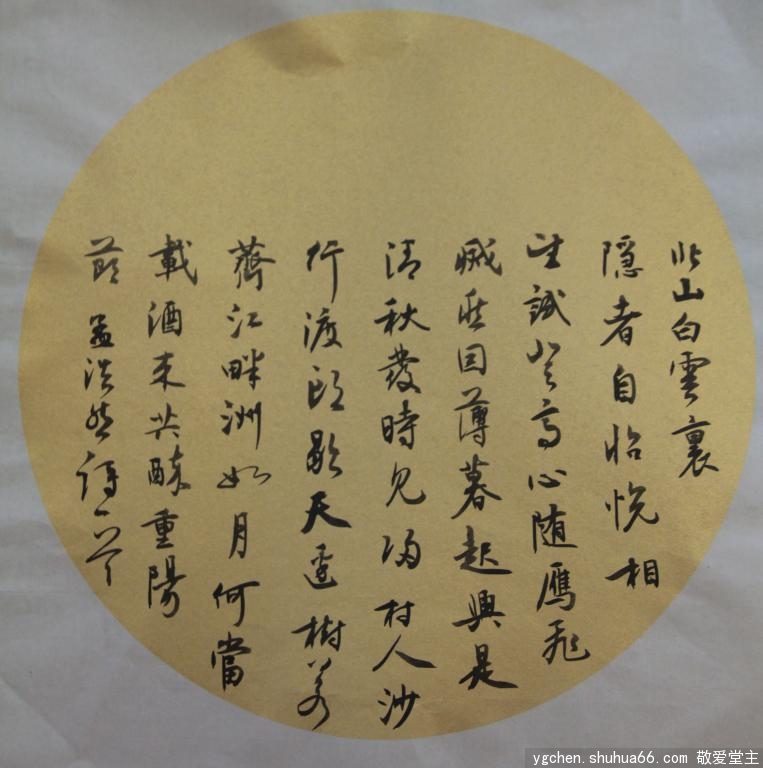 北山白雲裏
隱者自怡悦相
望試登高心随鴈飛
滅愁因薄暮起興是
清秋發時見歸村人沙
行渡頭歇天邊樹若
薺江畔洲如月何當
載酒来共醉重陽
節 孟浩然詩一首
ygchen.shuhua66.com 敬爱堂主